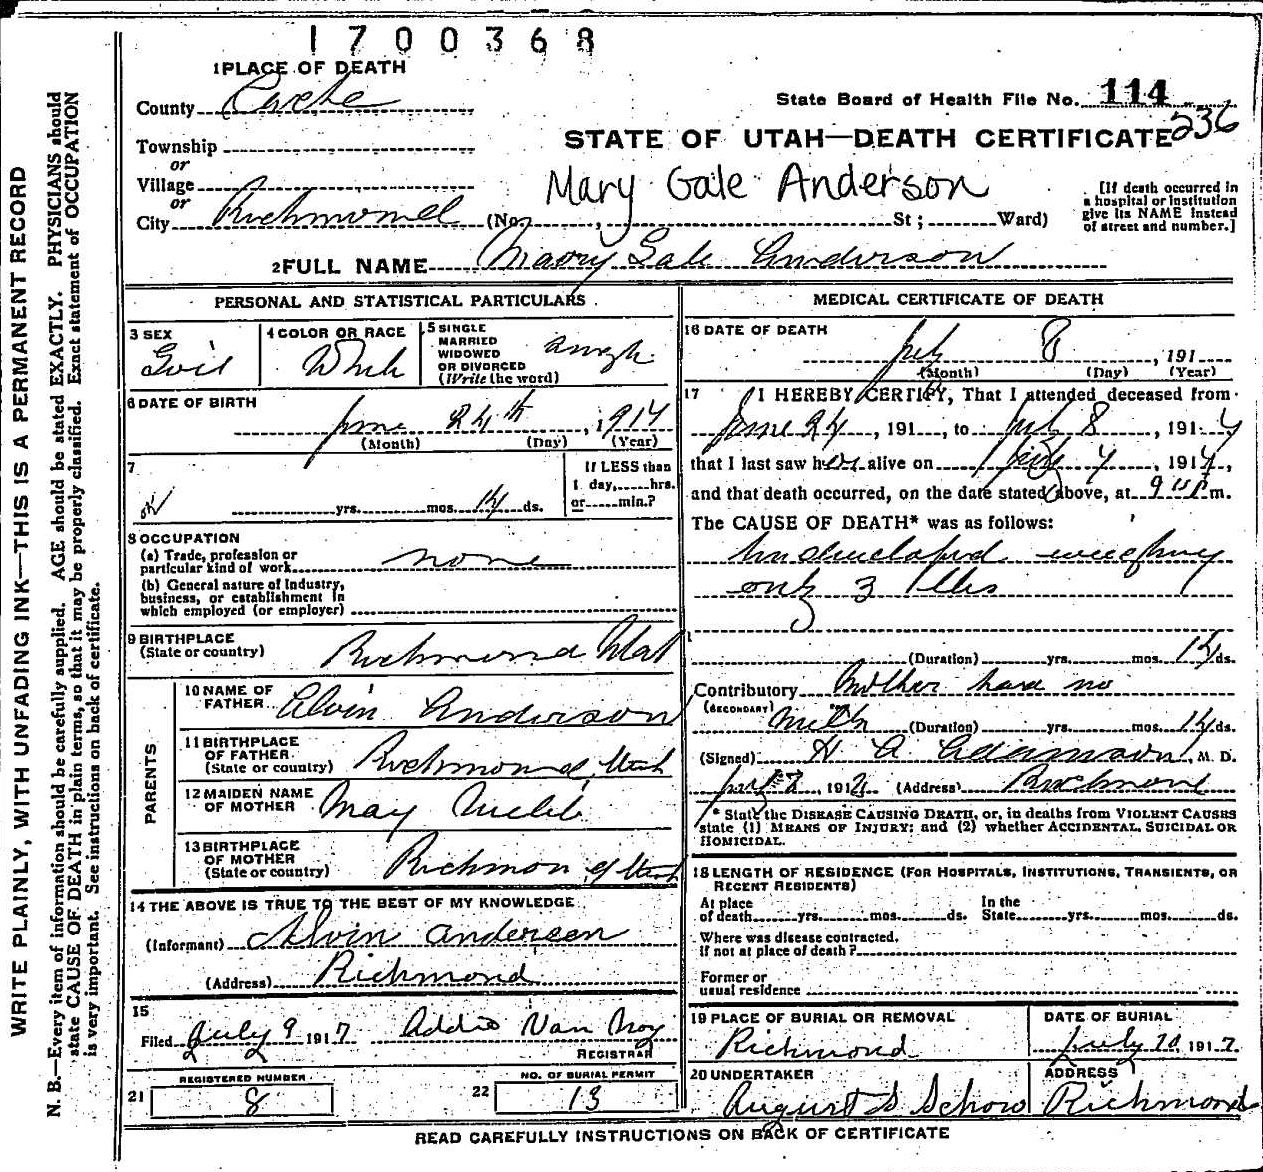 1700368
1 PLACE OF DEATH
County Cache
State Board of Health File No. 114
236
Township
STATE OF UTAH—DEATH CERTIFICATE
or
Village
Mary Gale Anderson
or
City Richmond (No. , St ; Ward)
[If death occurred in
a hospital or institution
give its NAME instead
of street and number.]
2 FULL NAME Mary Gale Anderson
PERSONAL AND STATISTICAL PARTICULARS
3 SEX
4 COLOR OR RACE
5 SINGLE
MARRIED
WIDOWED
OR DIVORCED
(Write the word)
6 DATE OF BIRTH
June 24th, 1917
(Month) (Day) (Year)
7
yrs. mos. 14 ds.
If LESS than
1 day, hrs.
or min.?
8 OCCUPATION
(a) Trade, profession or
particular kind of work none
(b) General nature of industry,
business, or establishment in
which employed (or employer)
9 BIRTHPLACE
(State or country) Richmond Utah
PARENTS
10 NAME OF
FATHER Alvin Anderson
11 BIRTHPLACE
OF FATHER
(State or country) Richmond, Utah
12 MAIDEN NAME
OF MOTHER May
13 BIRTHPLACE
OF MOTHER
(State or country) Richmond Utah
14 THE ABOVE IS TRUE TO THE BEST OF MY KNOWLEDGE
(Informant) Alvin Anderson
(Address) Richmond
15
Filed July 9 1917 Addie Van Noy
REGISTRAR
21 REGISTERED NUMBER
8
22 NO. OF BURIAL PERMIT
13
MEDICAL CERTIFICATE OF DEATH
16 DATE OF DEATH
July 8, 191
(Month) (Day) (Year)
17 I HEREBY CERTIFY, That I attended deceased from
June 24, 191, to July 8, 1917
that I last saw her alive on July 7, 1917,
and that death occurred, on the date stated above, at 9 P m.
The CAUSE OF DEATH* was as follows:
Undeveloped weighing
only 3 lbs
(Duration) yrs. mos. 14 ds.
Contributory Mother had no
(SECONDARY) milk (Duration) yrs. mos. 14 ds.
(Signed) H A Adamson, M. D.
191 (Address) Richmond
* State the DISEASE CAUSING DEATH, or, in deaths from VIOLENT CAUSES
state (1) MEANS OF INJURY; and (2) whether ACCIDENTAL, SUICIDAL OR
HOMICIDAL.
18 LENGTH OF RESIDENCE (FOR HOSPITALS, INSTITUTIONS, TRANSIENTS, OR
RECENT RESIDENTS)
At place
of death yrs. mos. ds.
In the
State yrs. mos. ds.
Where was disease contracted,
if not at place of death?
Former or
usual residence
19 PLACE OF BURIAL OR REMOVAL
Richmond
DATE OF BURIAL
July 10, 1917
20 UNDERTAKER
August S Schow
ADDRESS
Richmond
READ CAREFULLY INSTRUCTIONS ON BACK OF CERTIFICATE
WRITE PLAINLY, WITH UNFADING INK—THIS IS A PERMANENT RECORD
N. B.—Every item of information should be carefully supplied. AGE should be stated EXACTLY. PHYSICIANS should
state CAUSE OF DEATH in plain terms, so that it may be properly classified. Exact statement of OCCUPATION
is very important. See instructions on back of certificate.